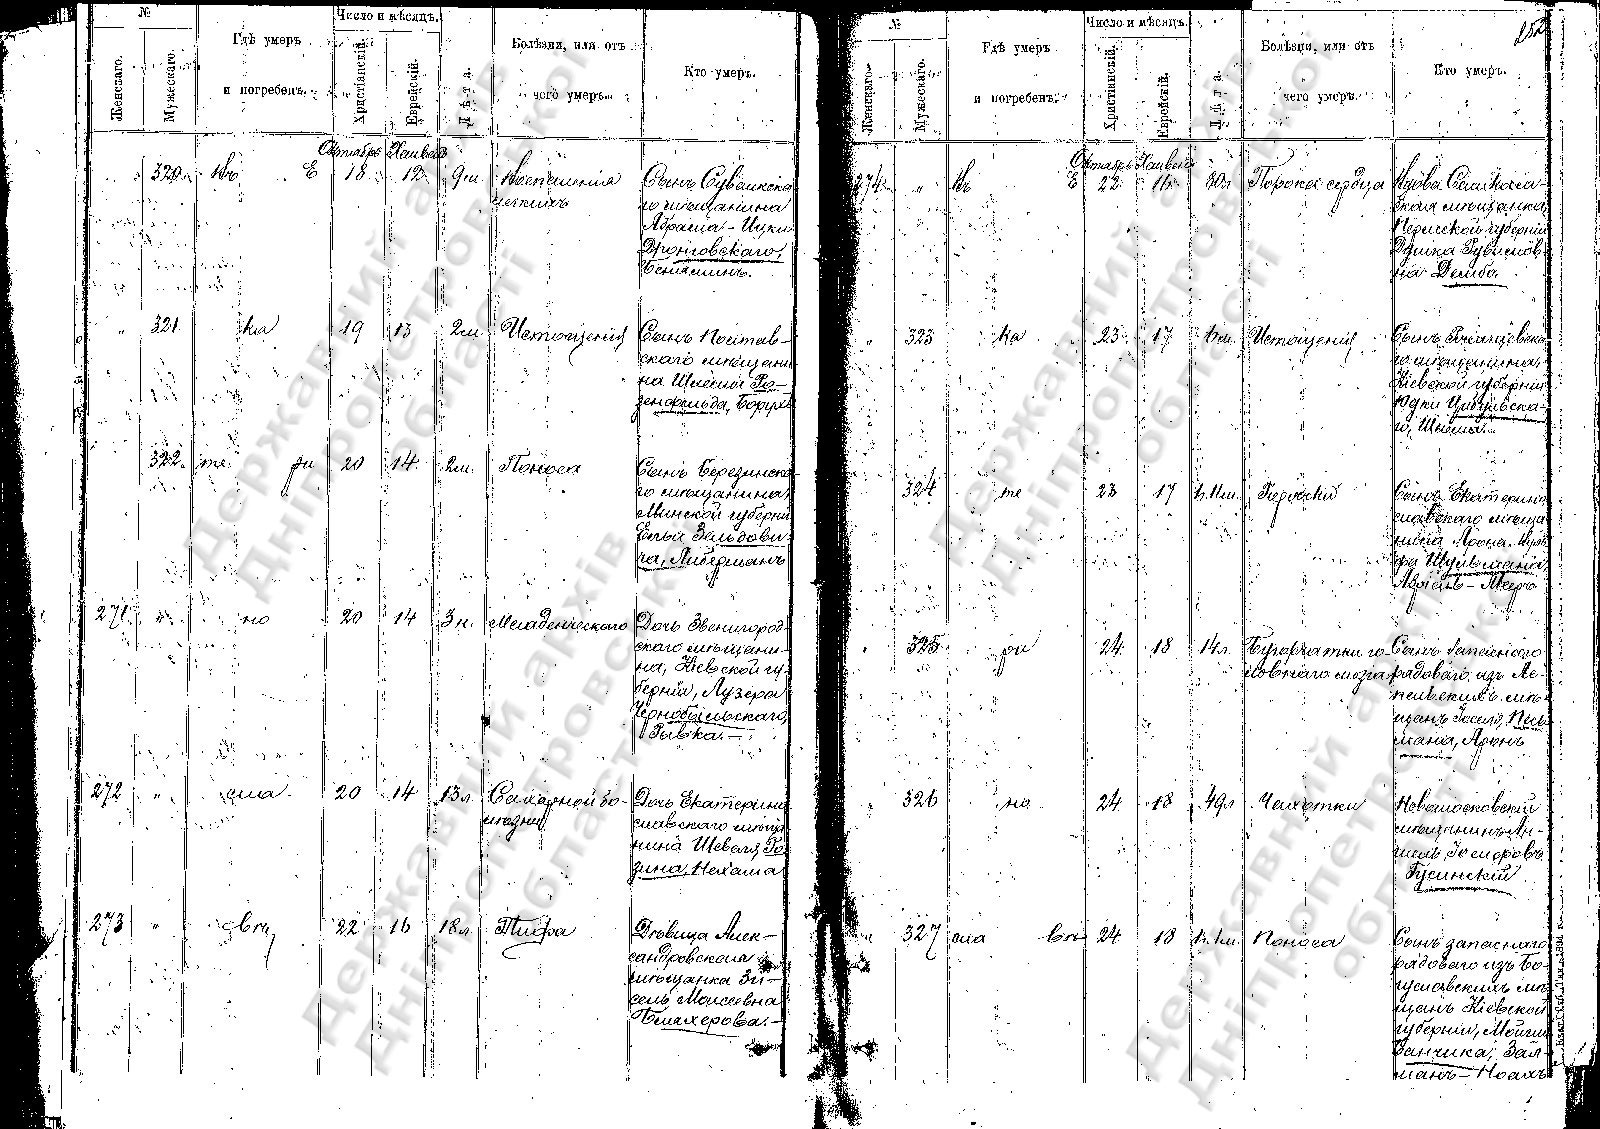 №
Женскаго.
Мужескаго.
Гдѣ умеръ
и погребенъ.
Число и мѣсяцъ.
Христіанскій.
Еврейскій.
Лѣта.
Болѣзни, или отъ
чего умеръ.
Кто умеръ.
Октябрь Хешвонъ
320 Въ Е 18 12 9 м Воспаленія
легкихъ
Сынъ Сувалкска-
го мѣщанина
Абрама-Ицки
Дронговскаго,
Беніаминъ.
321 ка 19 13 2 м. Истощенія
Сынъ Постав-
скаго мѣщани-
на Шлемы Ро-
зенфельда, Борухъ
322 те ри 20 14 2 м. Поноса
Сынъ Березинска-
го мѣщанина
Минской губерніи
Ельи Зельдови-
ча, Либерманъ
271 " но 20 14 3 н. Младенческаго
Дочь Звенигород-
скаго мѣщани-
на, Кіевской гу-
берніи, Лузера
Чернобыльскаго,
Рывка.
272 " сла 20 14 13 л. Сахарной бо-
лѣзни
Дочь Екатерино-
славскаго мѣща-
нина Шевеля Ро-
зина, Нехама
273 " 22 16 18 л. Тифа
Дѣвица Алек-
сандровская
мѣщанка Зи-
сель Моисеевна
Блахерова.
№
Женскаго.
Мужескаго.
Гдѣ умеръ
и погребенъ.
Число и мѣсяцъ.
Христіанскій.
Еврейскій.
Лѣта.
Болѣзни, или отъ
чего умеръ.
Кто умеръ.
252
Октябрь Хешвонъ
274 " Въ Е 22 16 30 л Порока сердца
Вдова
мѣщанка,
губерніи
Рувимов-
на Дембо.
323 ка 23 17 Истощенія
Сынъ
го мѣщанина,
Кіевской губерніи
Юдки Цибулевска-
го, Шлема.
324 те 23 17
Сынъ Екатерино-
славскаго мѣща-
нина
Шульмана,
325 ри 24 18 14 л. Бугорчатки го-
ловнаго мозга
Сынъ запаснаго
рядоваго, изъ Ле-
пельскихъ мѣ-
щанъ Іоселя,
Аронъ
326 но 24 18 49 л Чахотки
Новомосковскій
мѣщанинъ Ан-
шель Іосифовъ
Гусинскій
327 сла 24 18 Поноса
Сынъ запаснаго
рядоваго изъ Бо-
гуславскихъ мѣ-
щанъ Кіевской
губерніи,
Ванчика, Зал-
манъ-Ноахъ
Державний архів
Дніпровської
області